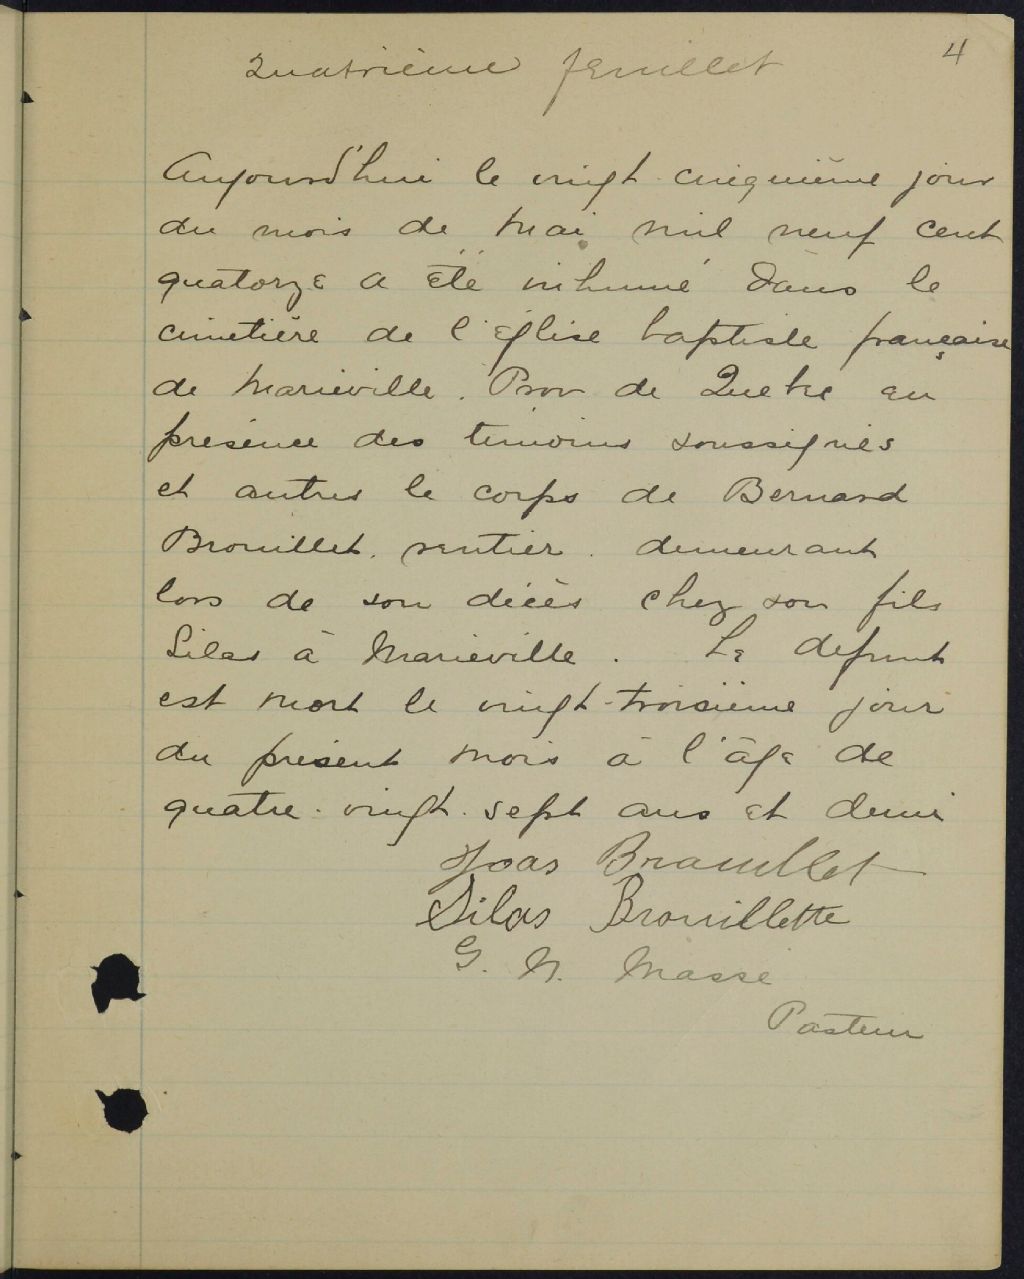 4
Quatrième feuillet
Aujourd'hui le vingt-cinquième jour
du mois de Mai mil neuf cent
quatorze a été inhumé dans le
cimetière de l'église baptiste française
de Marieville. Prov de Quebec en
présence des témoins soussignés
et autres le corps de Bernard
Brouillet, rentier, demeurant
lors de son décès chez son fils
Silas à Marieville. Le defunt
est mort le vingt-troisième jour
du présent mois à l'âge de
quatre-vingt-sept ans et demi
Joas Brouillet
Silas Brouillette
G. N. Massé
Pasteur